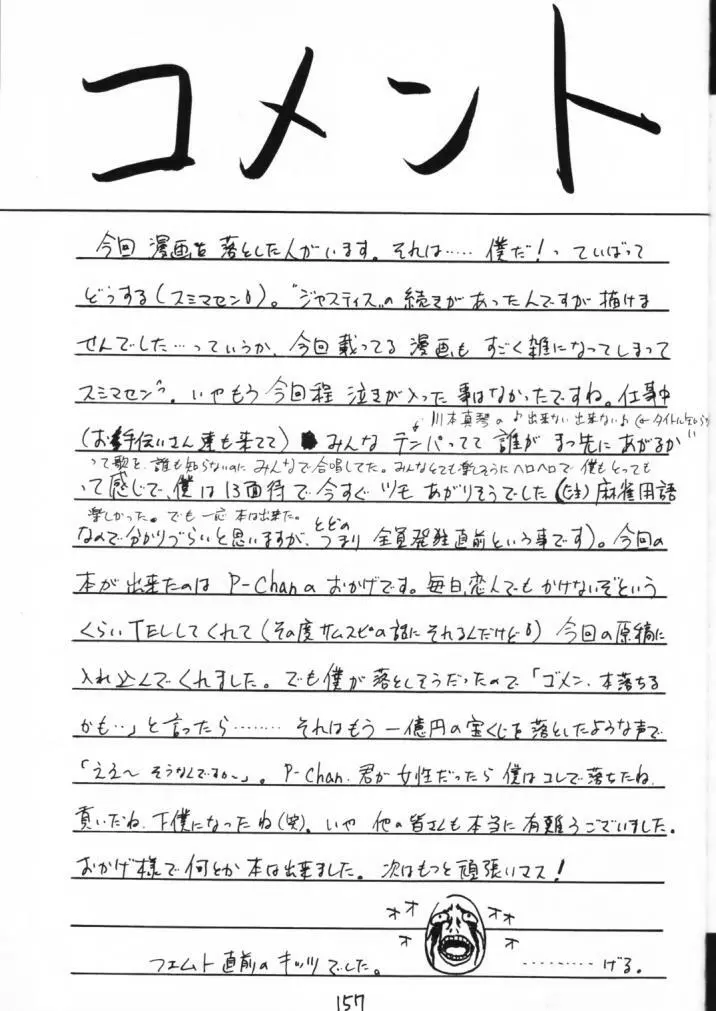 コメント
今回 漫画を 落とした人がいます。それは…… 僕だ!っていばって
どうする(スミマセン)。"ジャスティス"の 続きがあったんですが 描けま
せんでした…っていうか、今回 載ってる 漫画も すごく雑になってしまって
スミマセン。いやもう 今回程 泣きが入った 事はなかったですね。仕事中
川本真琴の ♪出来ない 出来ない♪(←タイトル知らん)
(お手伝いさん達も来てて) みんな テンパってて 誰が まっ先に あがるか
って歌を、誰も知らないのに みんなで合唱してた。みんなとても楽しそうに ヘロヘロで 僕も とっても
って感じで、僕は 13面待で 今すぐ ツモ あがりそうでした((注)麻雀用語
楽しかった。でも一応 本は出来た。
なので分かりづらいと思いますが、つまり 全員発狂直前という事です)。今回の
とどの
本が出来たのは P-Chanの おかげです。毎日、恋人でも かけないぞという
くらい TELしてくれて(その度サムスピの話に それるんだけど) 今回の原稿に
入れ込んでくれました。でも僕が 落としそうだったので「ゴメン、本落ちる
かも‥」と言ったら……… それはもう 一億円の宝くじを落としたような声で
「ええ〜 そうなんですか〜」。P-Chan、君が女性だったら 僕は コレで落ちたね、
貢いだね、下僕になったね(笑)。いや 他の皆さんも本当に 有難うございました。
おかげ様で何とか 本は出来ました。次はもっと頑張いマス!
オオ オオ
オ オ
フェムト直前の キッツでした。 ………げる。
157